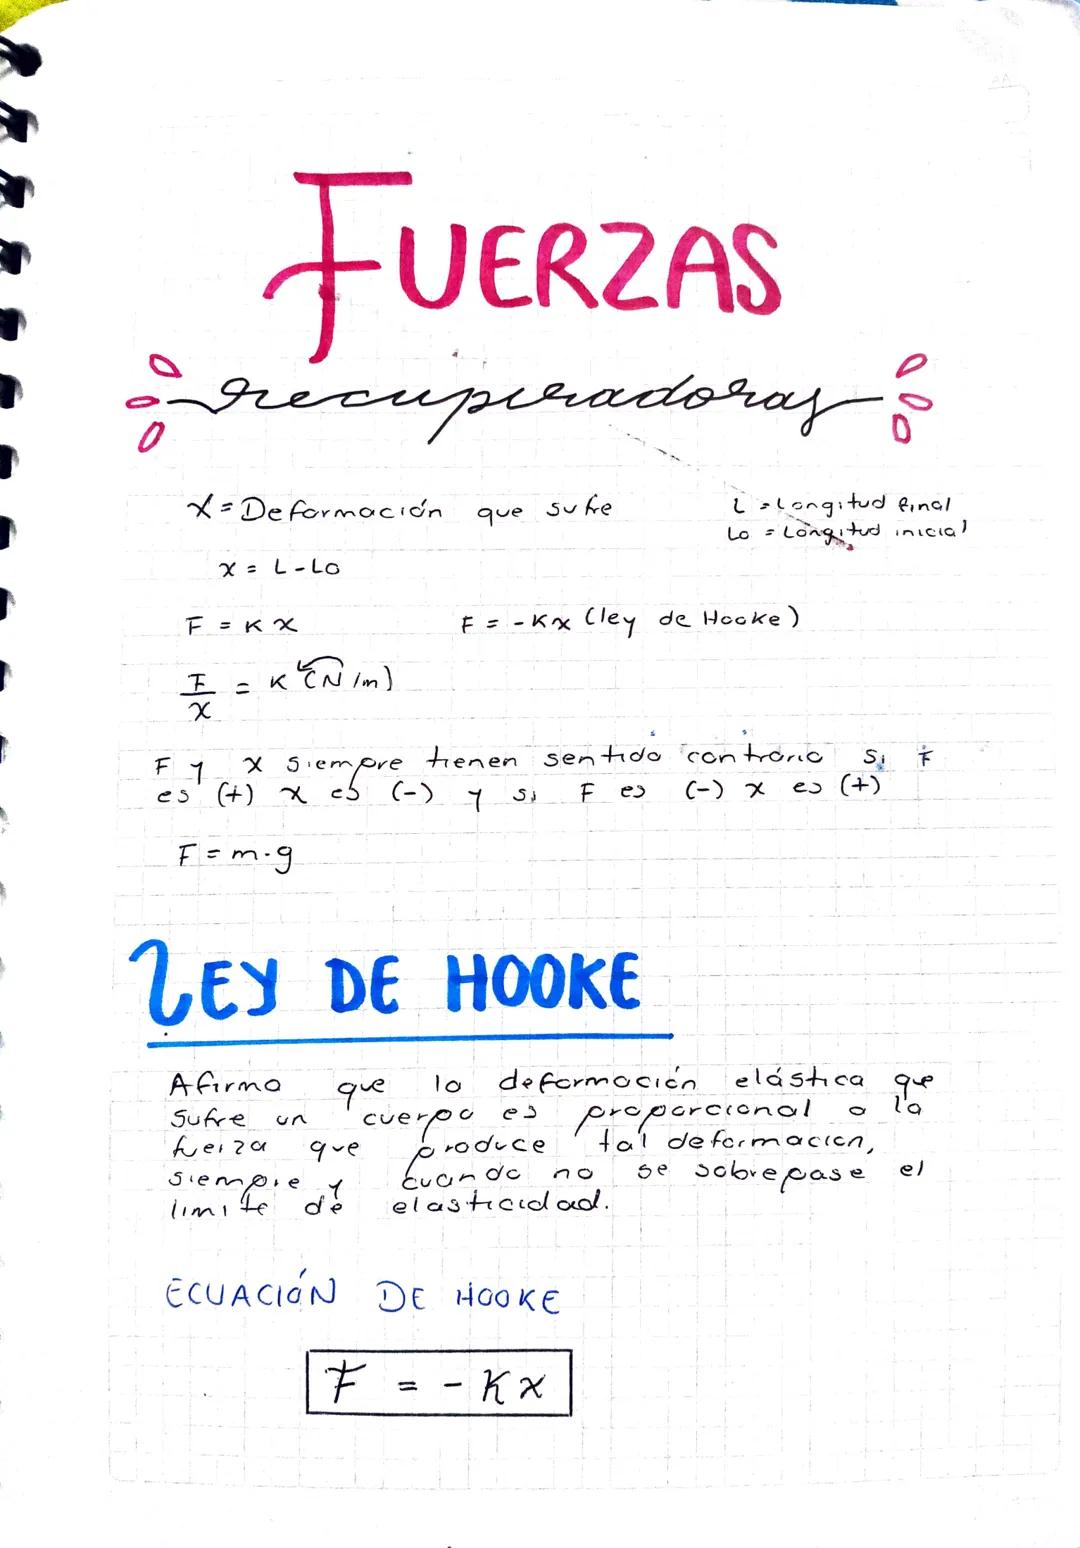 FUERZAS
recuperadoras
X = Deformación que sufre
L = Longitud final
Lo = Longitud inicial
x = L - Lo
F = K x
F = -Kx (ley de Hooke)
F/x = K (N/m)
F y x siempre tienen sentido contrario si F
es (+) x es (-) y si F es (-) x es (+)
F = m·g
LEY DE HOOKE
Afirma que la deformación elástica que
sufre un cuerpo es proporcional a la
fuerza que produce tal deformación,
siempre y cuando no se sobrepase el
limite de elasticidad.
ECUACIÓN DE HOOKE
F = - Kx